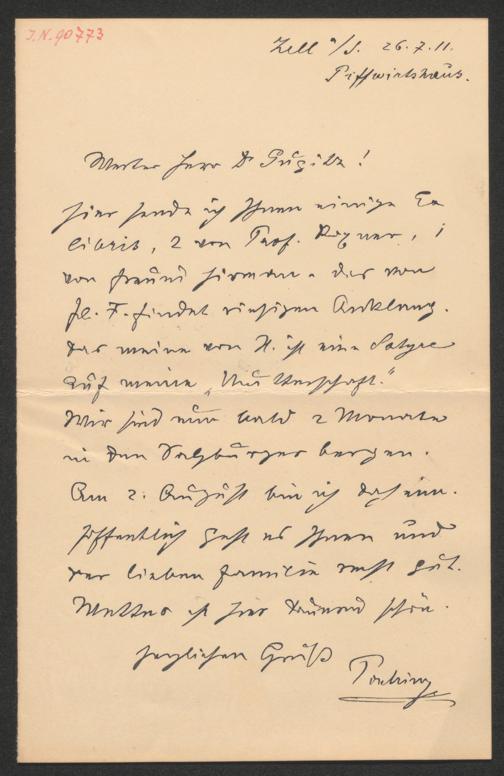 I.N. 90773
Zell a/S. 26.7.11.
Piffwirtshaus.
Werter Herr Dr Gugitz!
Hier sende ich Ihnen einige Ex
libris, 2 von Prof. 1
von Freund das von
Fl. F. findet riesigen Anklang.
Das meine von H. ist eine Satyre
auf meine „Mutterschaft."
Wir sind nun bald 2 Monate
in den Salzburger bergen.
Am 2. August bin ich daheim.
Hoffentlich geht es Ihnen und
der lieben Familie recht gut.
Wetter ist hier dauernd schön.
Herzlichen Gruß